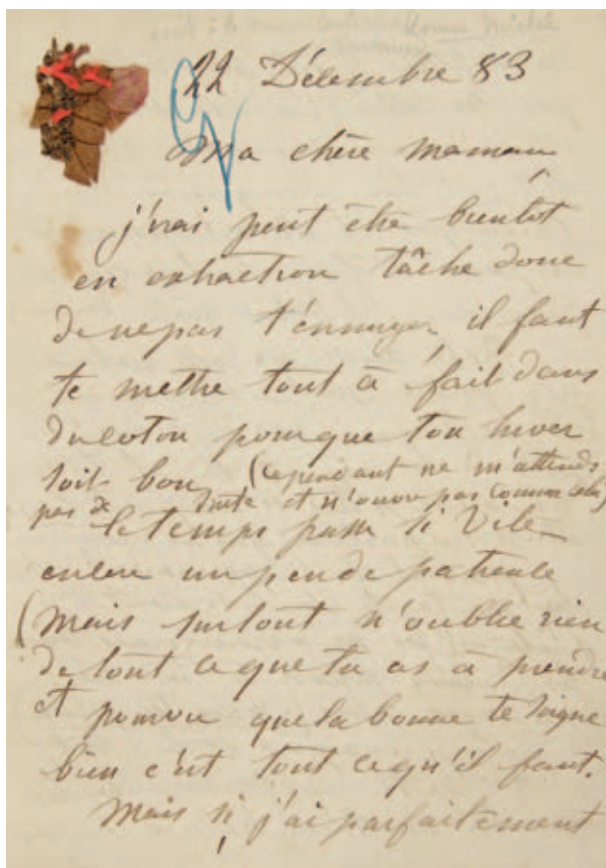 22 Décembre 83
Ma chère maman
j'irai peut être bientôt
en extraction tâche donc
de ne pas t'ennuyer, il faut
te mettre tout à fait dans
du coton pour que ton hiver
soit bon (cependant ne m'attends
pas de suite et n'ouvre pas comme cela)
le temps passe si vite
encore un peu de patience
(Mais surtout n'oublie rien
de tout ce que tu as à prendre
et pourvu que la bonne te soigne
bien c'est tout ce qu'il faut.
Mais si j'ai parfaitement